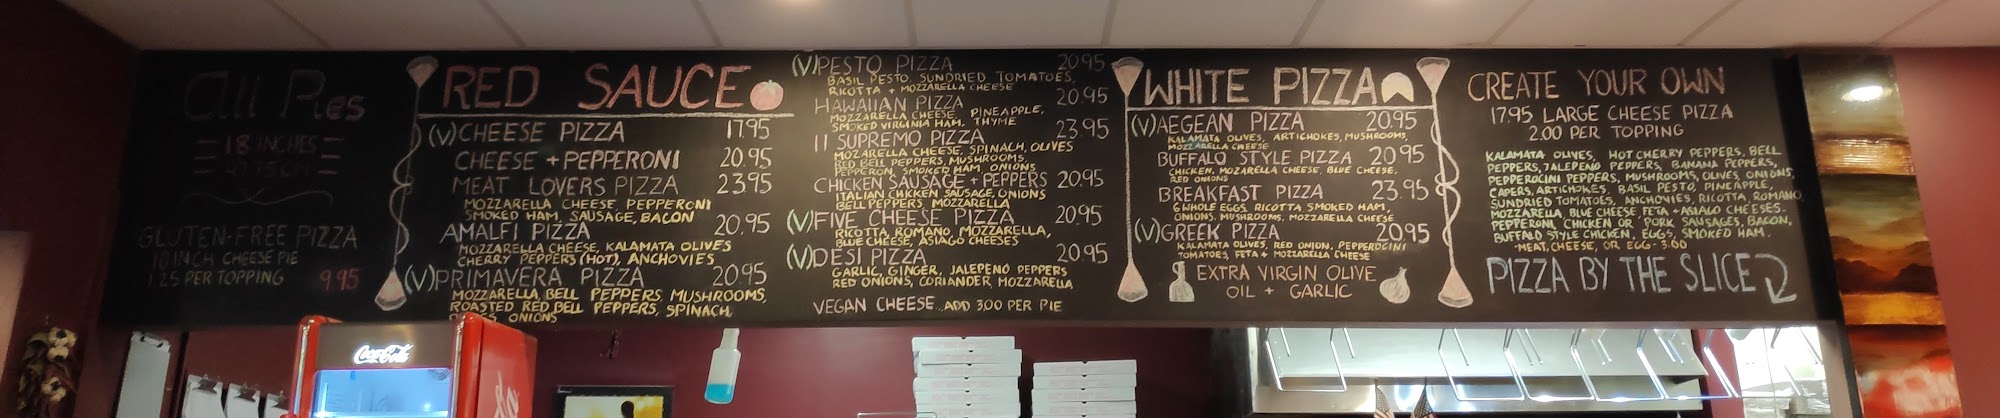 All Pies
18 INCHES
47.75 CM
GLUTEN-FREE PIZZA
10 INCH CHEESE PIE
1.25 PER TOPPING 9.95
RED SAUCE
(V) CHEESE PIZZA 17.95
CHEESE + PEPPERONI 20.95
MEAT LOVERS PIZZA 23.95
MOZZARELLA CHEESE PEPPERONI
SMOKED HAM, SAUSAGE, BACON
AMALFI PIZZA 20.95
MOZZARELLA CHEESE, KALAMATA OLIVES
CHERRY PEPPERS (HOT), ANCHOVIES
(V) PRIMAVERA PIZZA 20.95
MOZZARELLA, BELL PEPPERS, MUSHROOMS,
ROASTED RED BELL PEPPERS, SPINACH,
ONIONS
(V) PESTO PIZZA 20.95
BASIL PESTO, SUNDRIED TOMATOES,
RICOTTA + MOZZARELLA CHEESE
HAWAIIAN PIZZA 20.95
MOZZARELLA CHEESE, PINEAPPLE,
SMOKED VIRGINIA HAM, THYME
II SUPREMO PIZZA 23.95
MOZARELLA CHEESE, SPINACH, OLIVES
RED BELL PEPPERS, MUSHROOMS,
PEPPERON, SMOKED HAM, ONIONS
CHICKEN SAUSAGE + PEPPERS 20.95
ITALIAN CHICKEN SAUSAGE, ONIONS
BELL PEPPERS, MOZZARELLA
(V) FIVE CHEESE PIZZA 20.95
RICOTTA, ROMANO, MOZZARELLA,
BLUE CHEESE, ASIAGO CHEESES
(V) DESI PIZZA 20.95
GARLIC, GINGER, JALEPENO PEPPERS
RED ONIONS, CORIANDER, MOZZARELLA
VEGAN CHEESE...ADD 3.00 PER PIE
WHITE PIZZA
(V) AEGEAN PIZZA 20.95
KALAMATA OLIVES, ARTICHOKES, MUSHROOMS,
MOZZARELLA CHEESE
BUFFALO STYLE PIZZA 20.95
CHICKEN, MOZARELLA CHEESE, BLUE CHEESE,
RED ONIONS
BREAKFAST PIZZA 23.95
6 WHOLE EGGS, RICOTTA, SMOKED HAM,
ONIONS, MUSHROOMS, MOZZARELLA CHEESE
(V) GREEK PIZZA 20.95
KALAMATA OLIVES, RED ONION, PEPPEROCINI
TOMATOES, FETA + MOZZARELLA CHEESE
EXTRA VIRGIN OLIVE
OIL + GARLIC
CREATE YOUR OWN
17.95 LARGE CHEESE PIZZA
2.00 PER TOPPING
KALAMATA OLIVES, HOT CHERRY PEPPERS, BELL
PEPPERS, JALEPENO PEPPERS, BANANA PEPPERS,
PEPPEROCINI PEPPERS, MUSHROOMS, OLIVES, ONIONS,
CAPERS, ARTICHOKES, BASIL PESTO, PINEAPPLE,
SUNDRIED TOMATOES, ANCHOVIES, RICOTTA, ROMANO,
MOZZARELLA, BLUE CHEESE, FETA + ASIAGO CHEESES.
PEPPERONI, CHICKEN OR PORK SAUSAGES, BACON,
BUFFALO STYLE CHICKEN, EGGS, SMOKED HAM.
-MEAT, CHEESE, OR EGG- 3.00
PIZZA BY THE SLICE
Coca-Cola